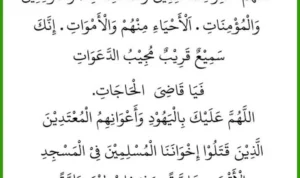 وَالْمُؤْمِنَاتِ . اَلْأَحْيَاءِ مِنْهُمْ وَالْأَمْوَاتِ . إِنَّكَ
سَمِيْعٌ قَرِيْبٌ مُجِيْبُ الدَّعَوَاتِ
فَيَا قَاضِيَ الْحَاجَاتِ.
اللَّهُمَّ عَلَيْكَ بِالْيَهُوْدِ وَأَعْوَانِهِمُ الْمُعْتَدِيْنَ
الَّذِيْنَ قَتَلُوْا إِخْوَانَنَا الْمُسْلِمِيْنَ فِيْ الْمَسْجِدِ